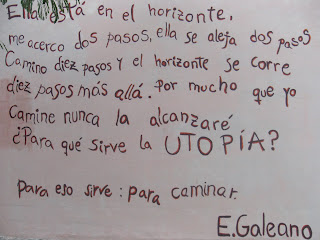 Ella está en el horizonte,
me acerco dos pasos, ella se aleja dos pasos
Camino diez pasos y el horizonte se corre
diez pasos más allá. Por mucho que yo
Camine nunca la alcanzaré
¿Para qué sirve la UTOPÍA?
Para eso sirve: para caminar.
E.Galeano